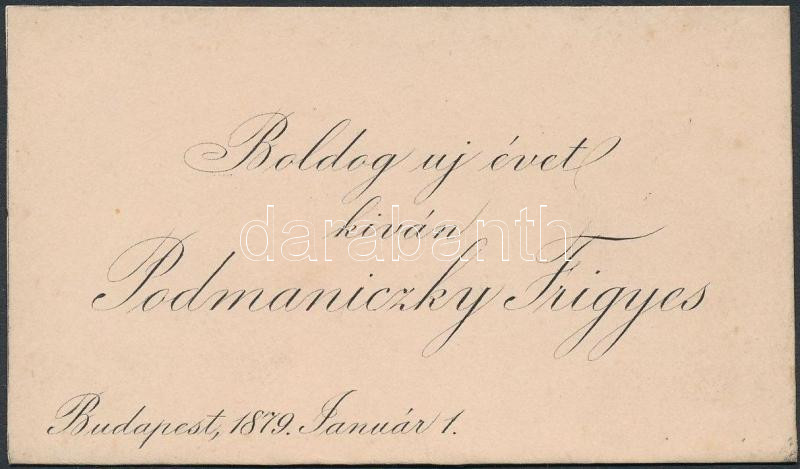 Boldog uj évet
kiván
darabanth
Podmaniczky Frigyes
Budapest, 1879. Január 1.